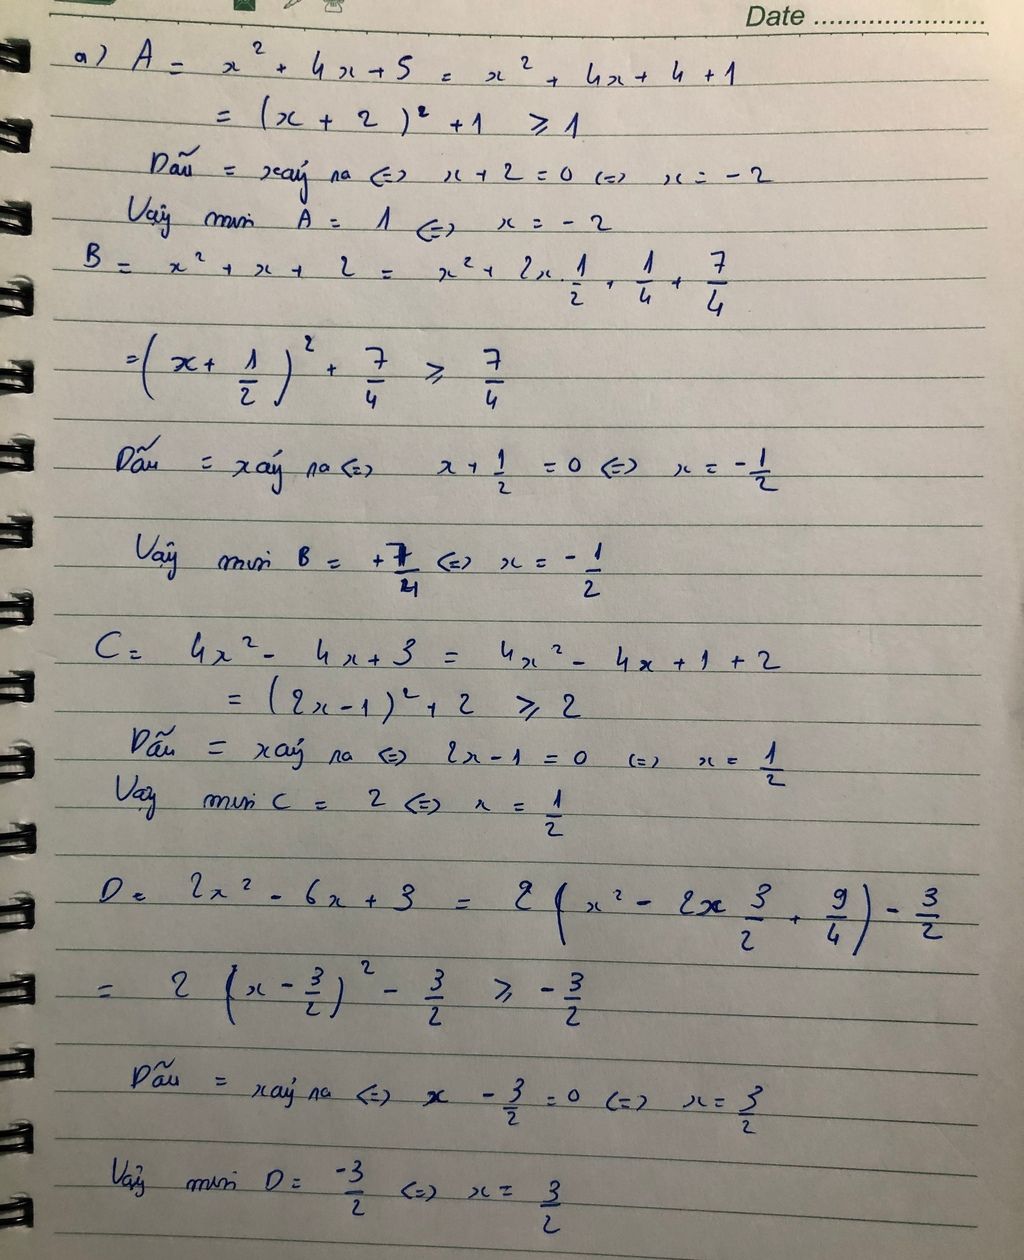 Date ........................
a) A = x² + 4x + 5 = x² + 4x + 4 + 1
= (x + 2)² + 1 ⩾ 1
Dấu = xảy ra <=> x + 2 = 0 <=> x = - 2
Vậy min A = 1 <=> x = - 2
B = x² + x + 2 = x² + 2x . 1/2 + 1/4 + 7/4
= (x + 1/2)² + 7/4 ⩾ 7/4
Dấu = xảy ra <=> x + 1/2 = 0 <=> x = - 1/2
Vậy min B = + 7/4 <=> x = - 1/2
C = 4x² - 4x + 3 = 4x² - 4x + 1 + 2
= (2x - 1)² + 2 ⩾ 2
Dấu = xảy ra <=> 2x - 1 = 0 <=> x = 1/2
Vậy min C = 2 <=> x = 1/2
D = 2x² - 6x + 3 = 2 (x² - 2x 3/2 + 9/4) - 3/2
= 2 (x - 3/2)² - 3/2 ⩾ - 3/2
Dấu = xảy ra <=> x - 3/2 = 0 <=> x = 3/2
Vậy min D = -3/2 <=> x = 3/2